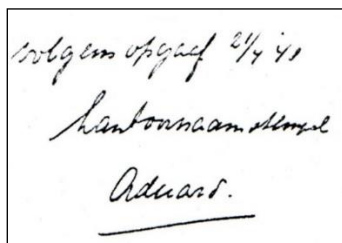 volgens opgaaf 21/4 '41
kantoornaamstempel
Aduard.